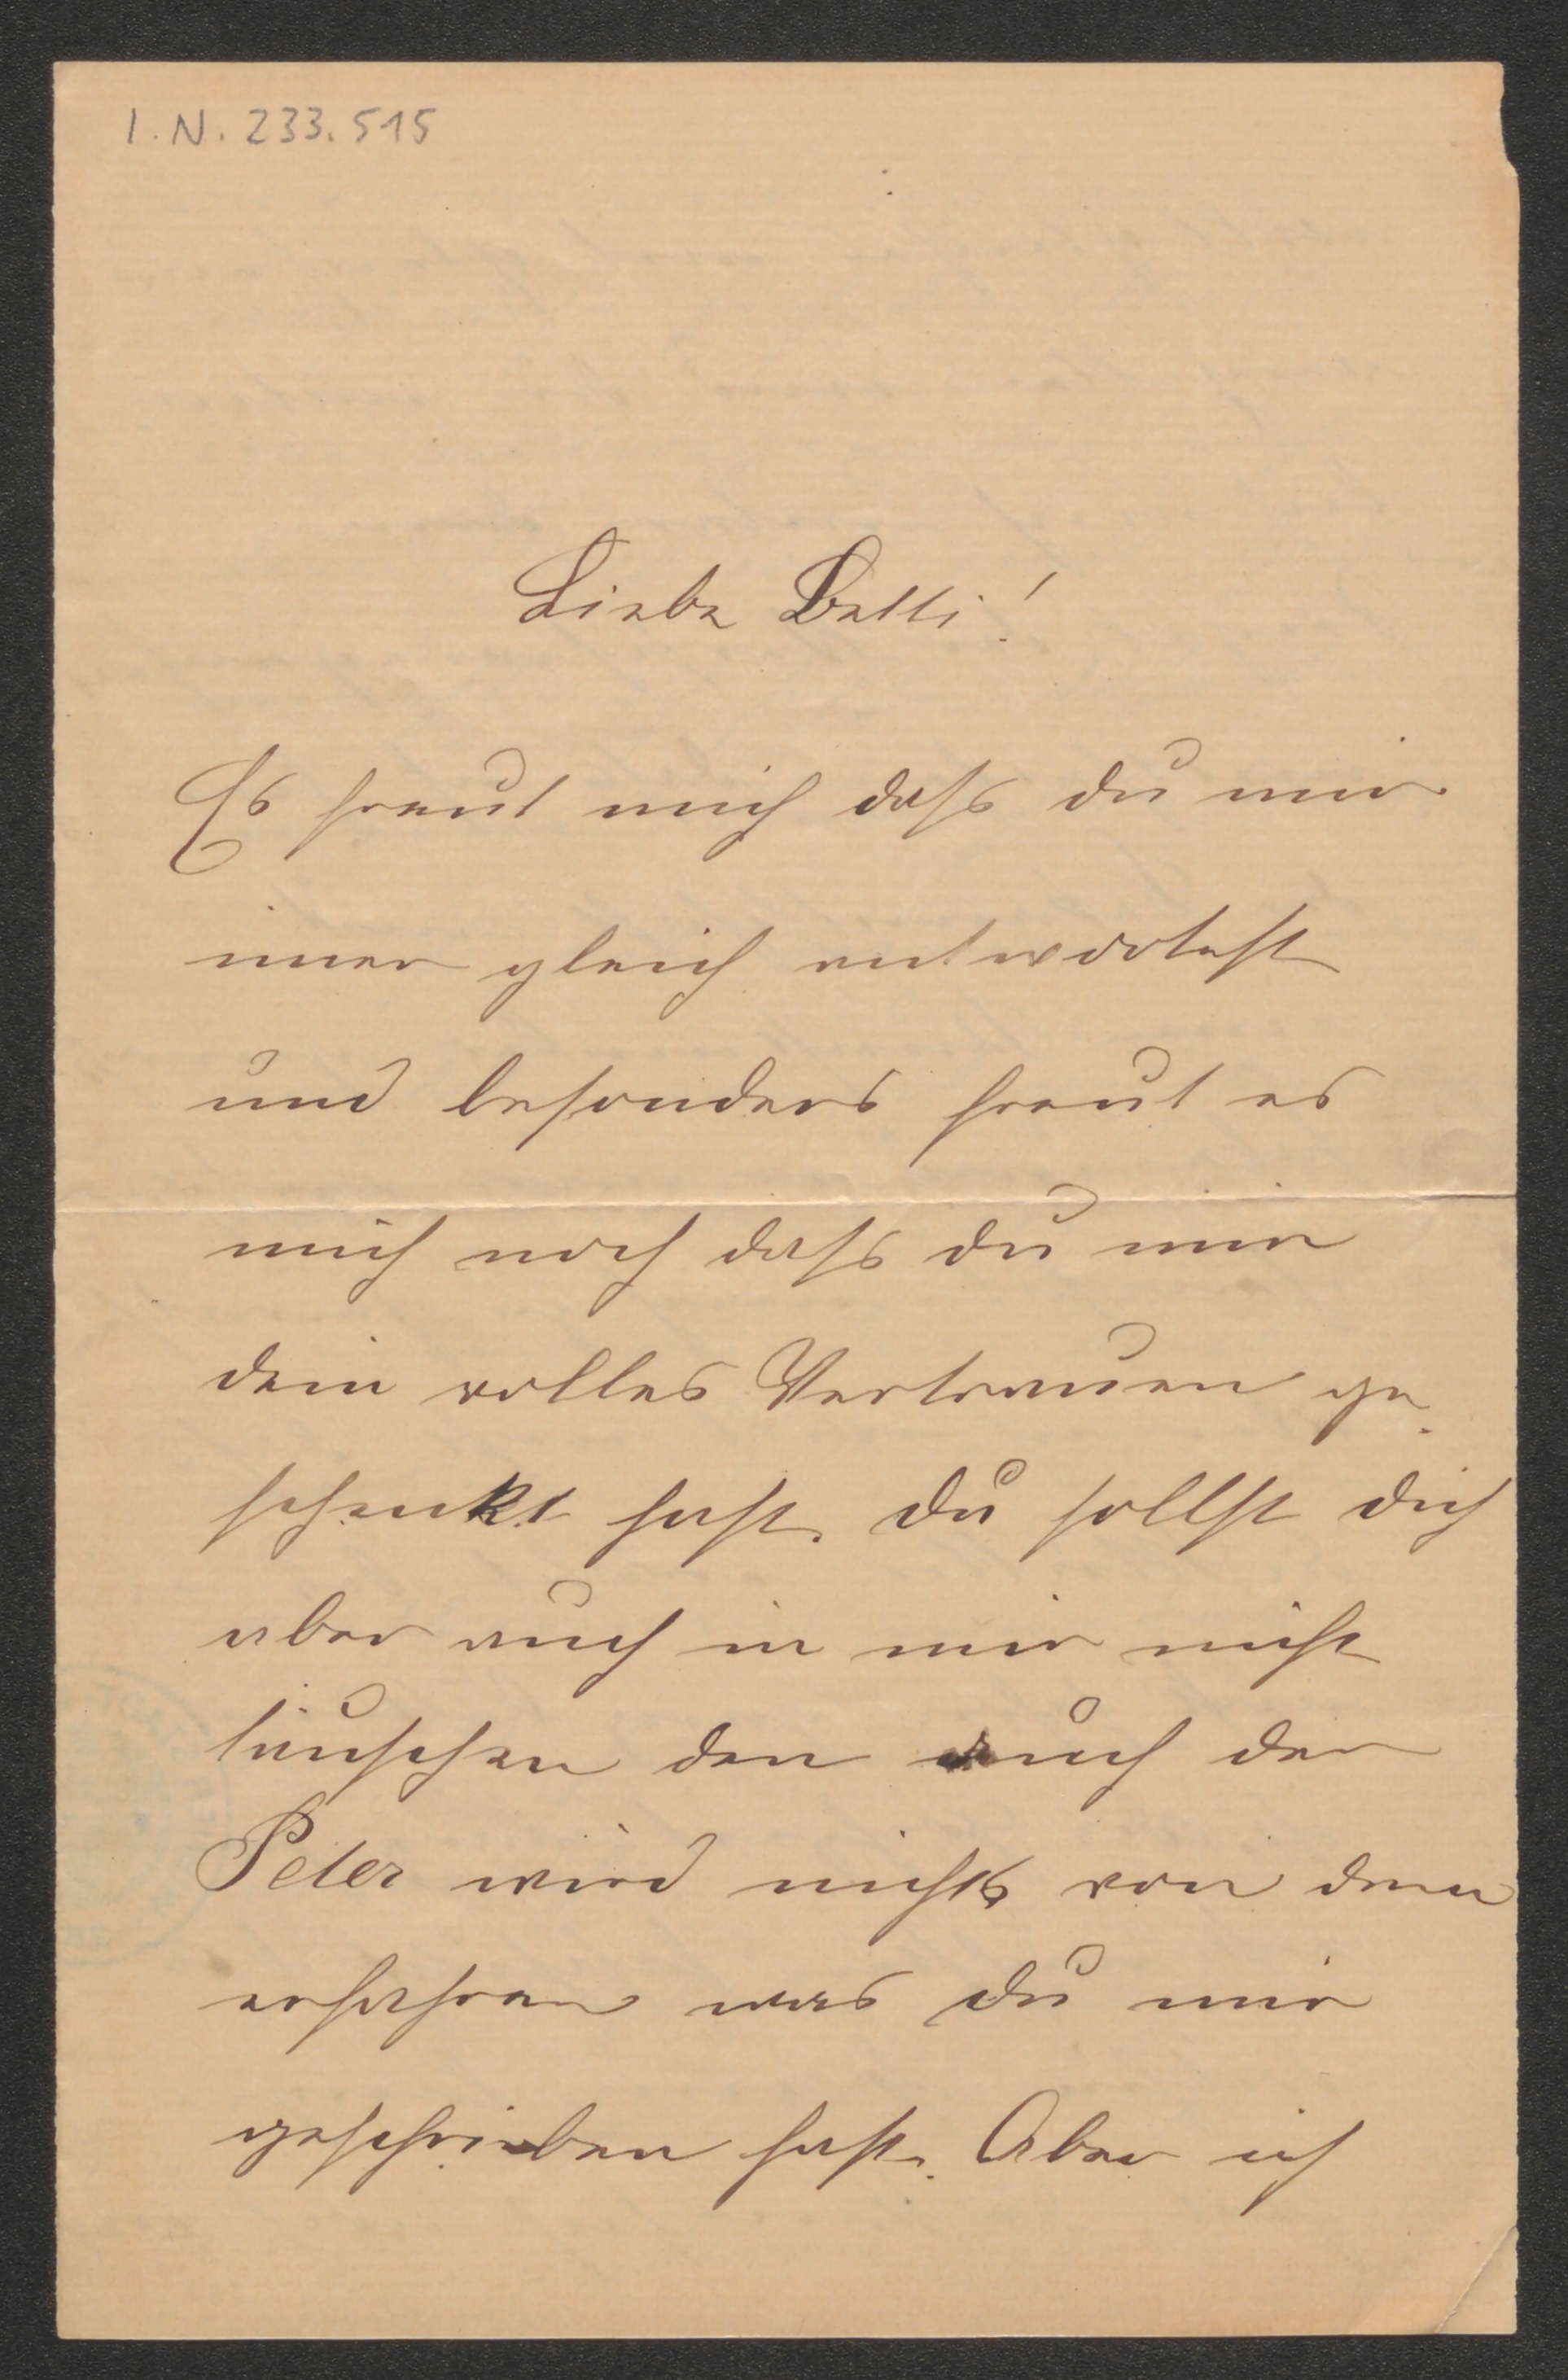 I.N. 233.515
Liebe Betti!
Es freut mich dass du mir
imer gleich antwortest
und besonders freut es
mich noch dass du mir
dein volles Vertrauen ge-
schenkt hast. du sollst dich
aber auch in mir nicht
täuschen den auch der
Peter wird nichts von dem
erfahren was du mir
geschrieben hast. Aber ich